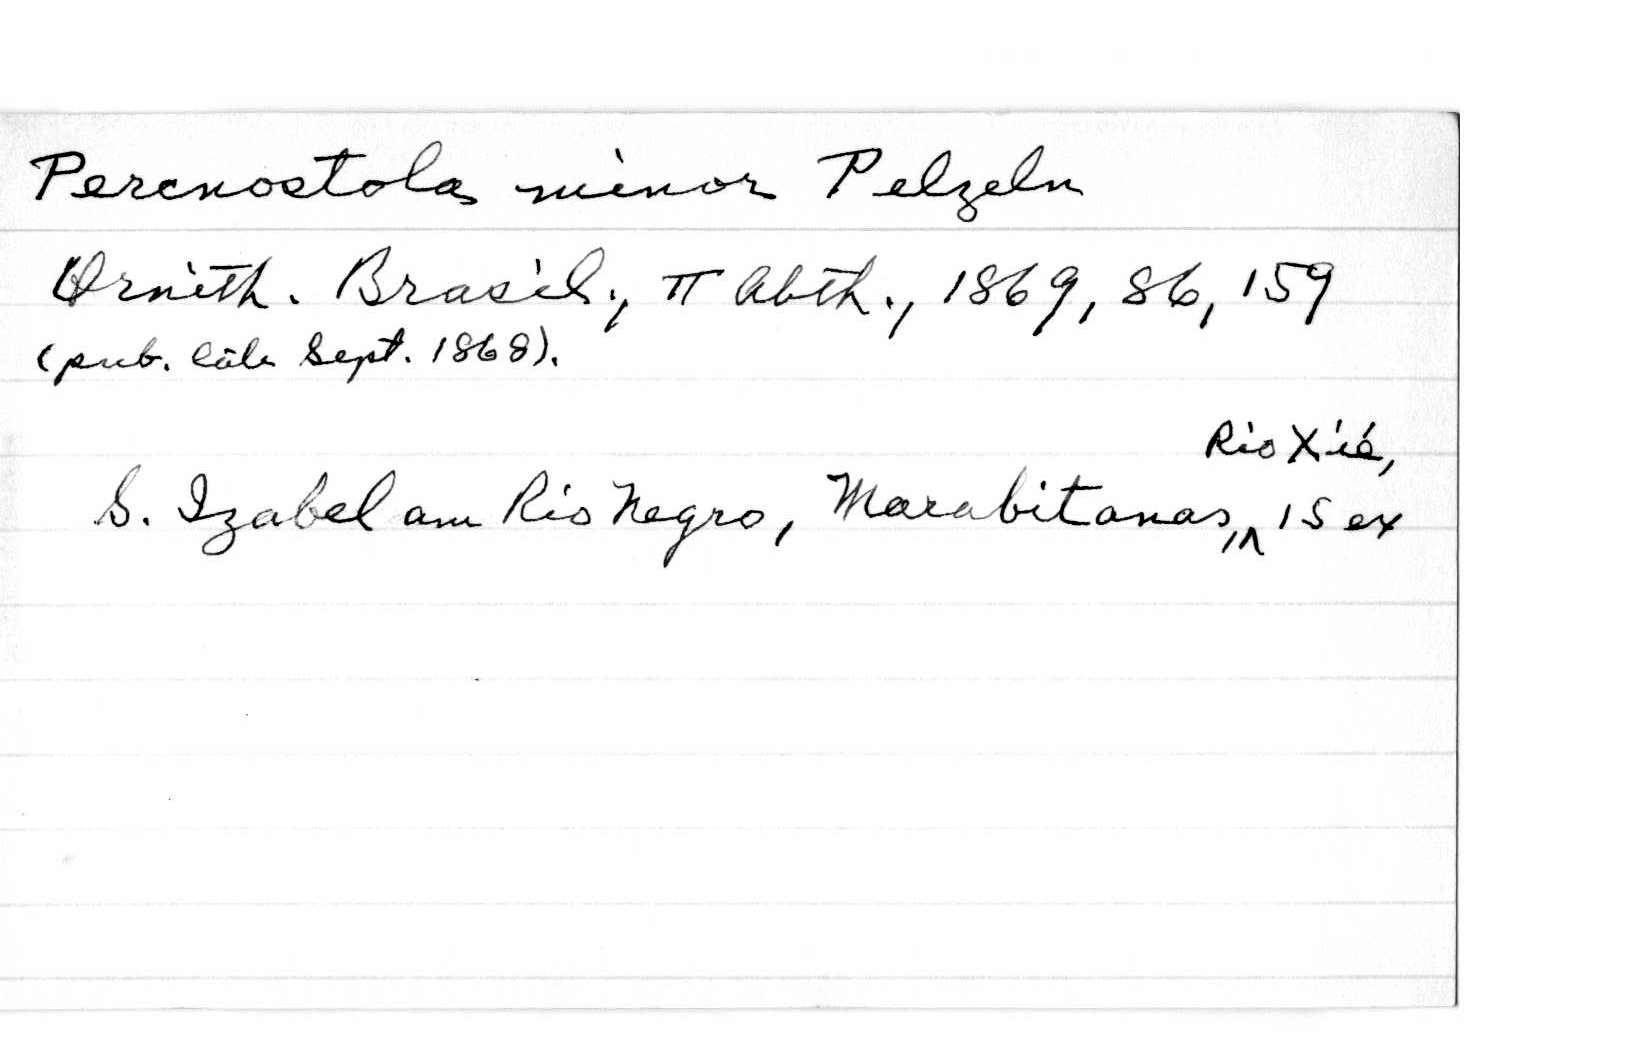 Percnostola minor Pelzeln
Ornith. Brasil., II Abth., 1869, 86, 159
(pub. late Sept. 1868).
Rio Xié,
S. Izabel am Rio Negro, Marabitanas, ^ 15 ex